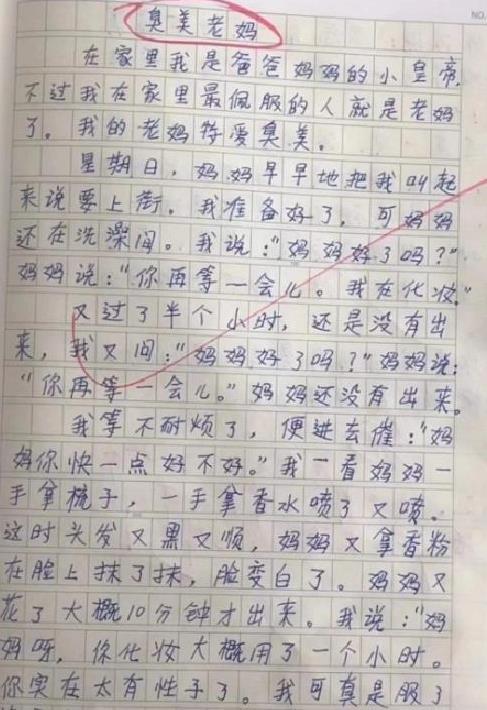 臭美老妈
在家里我是爸爸妈妈的小皇帝,
不过我在家里最佩服的人就是老妈
了。我的老妈特爱臭美。
星期日，妈妈早早地把我叫起
来说要上街。我准备好了，可妈妈
还在洗澡间。我说：“妈妈好了吗？”
妈妈说：“你再等一会儿。我在化妆。”
又过了半个小时，还是没有出
来，我又问：“妈妈好了吗？”妈妈说：
“你再等一会儿。”妈妈还没有出来。
我等不耐烦了，便进去催：“妈
妈你快一点好不好。”我一看妈妈一
手拿梳子，一手拿香水喷了又喷。
这时头发又黑又顺，妈妈又拿香粉
在脸上抹了抹，脸变白了。妈妈又
花了大概10分钟才出来。我说：“妈
妈呀，你化妆大概用了一个小时。
你实在太有性子了。我可真是服了